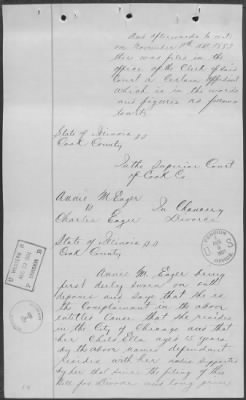 And afterwards to wit:
on November 11th A.D. 1883
there was filed in the
office of the Clerk of said
Court a certain affidavit
which is in the words
and figures as follows
towit:
State of Illinois } ss
Cook County
In the Superior Court
of Cook Co
Annie M Eager
vs
Charles Eager
In Chancery
Divorce
State of Illinois } ss
Cook County
Annie M. Eager being
first duly sworn on oath
deposes and says that she is
the Complainant in the above
entitled Cause that she resides
in the City of Chicago and that
her Child Ella aged 15 years
by the above named defendant
resides with her and is supported
by her and since the filing of the
Bill for divorce and long prior
PENSION
U S
OFFICE